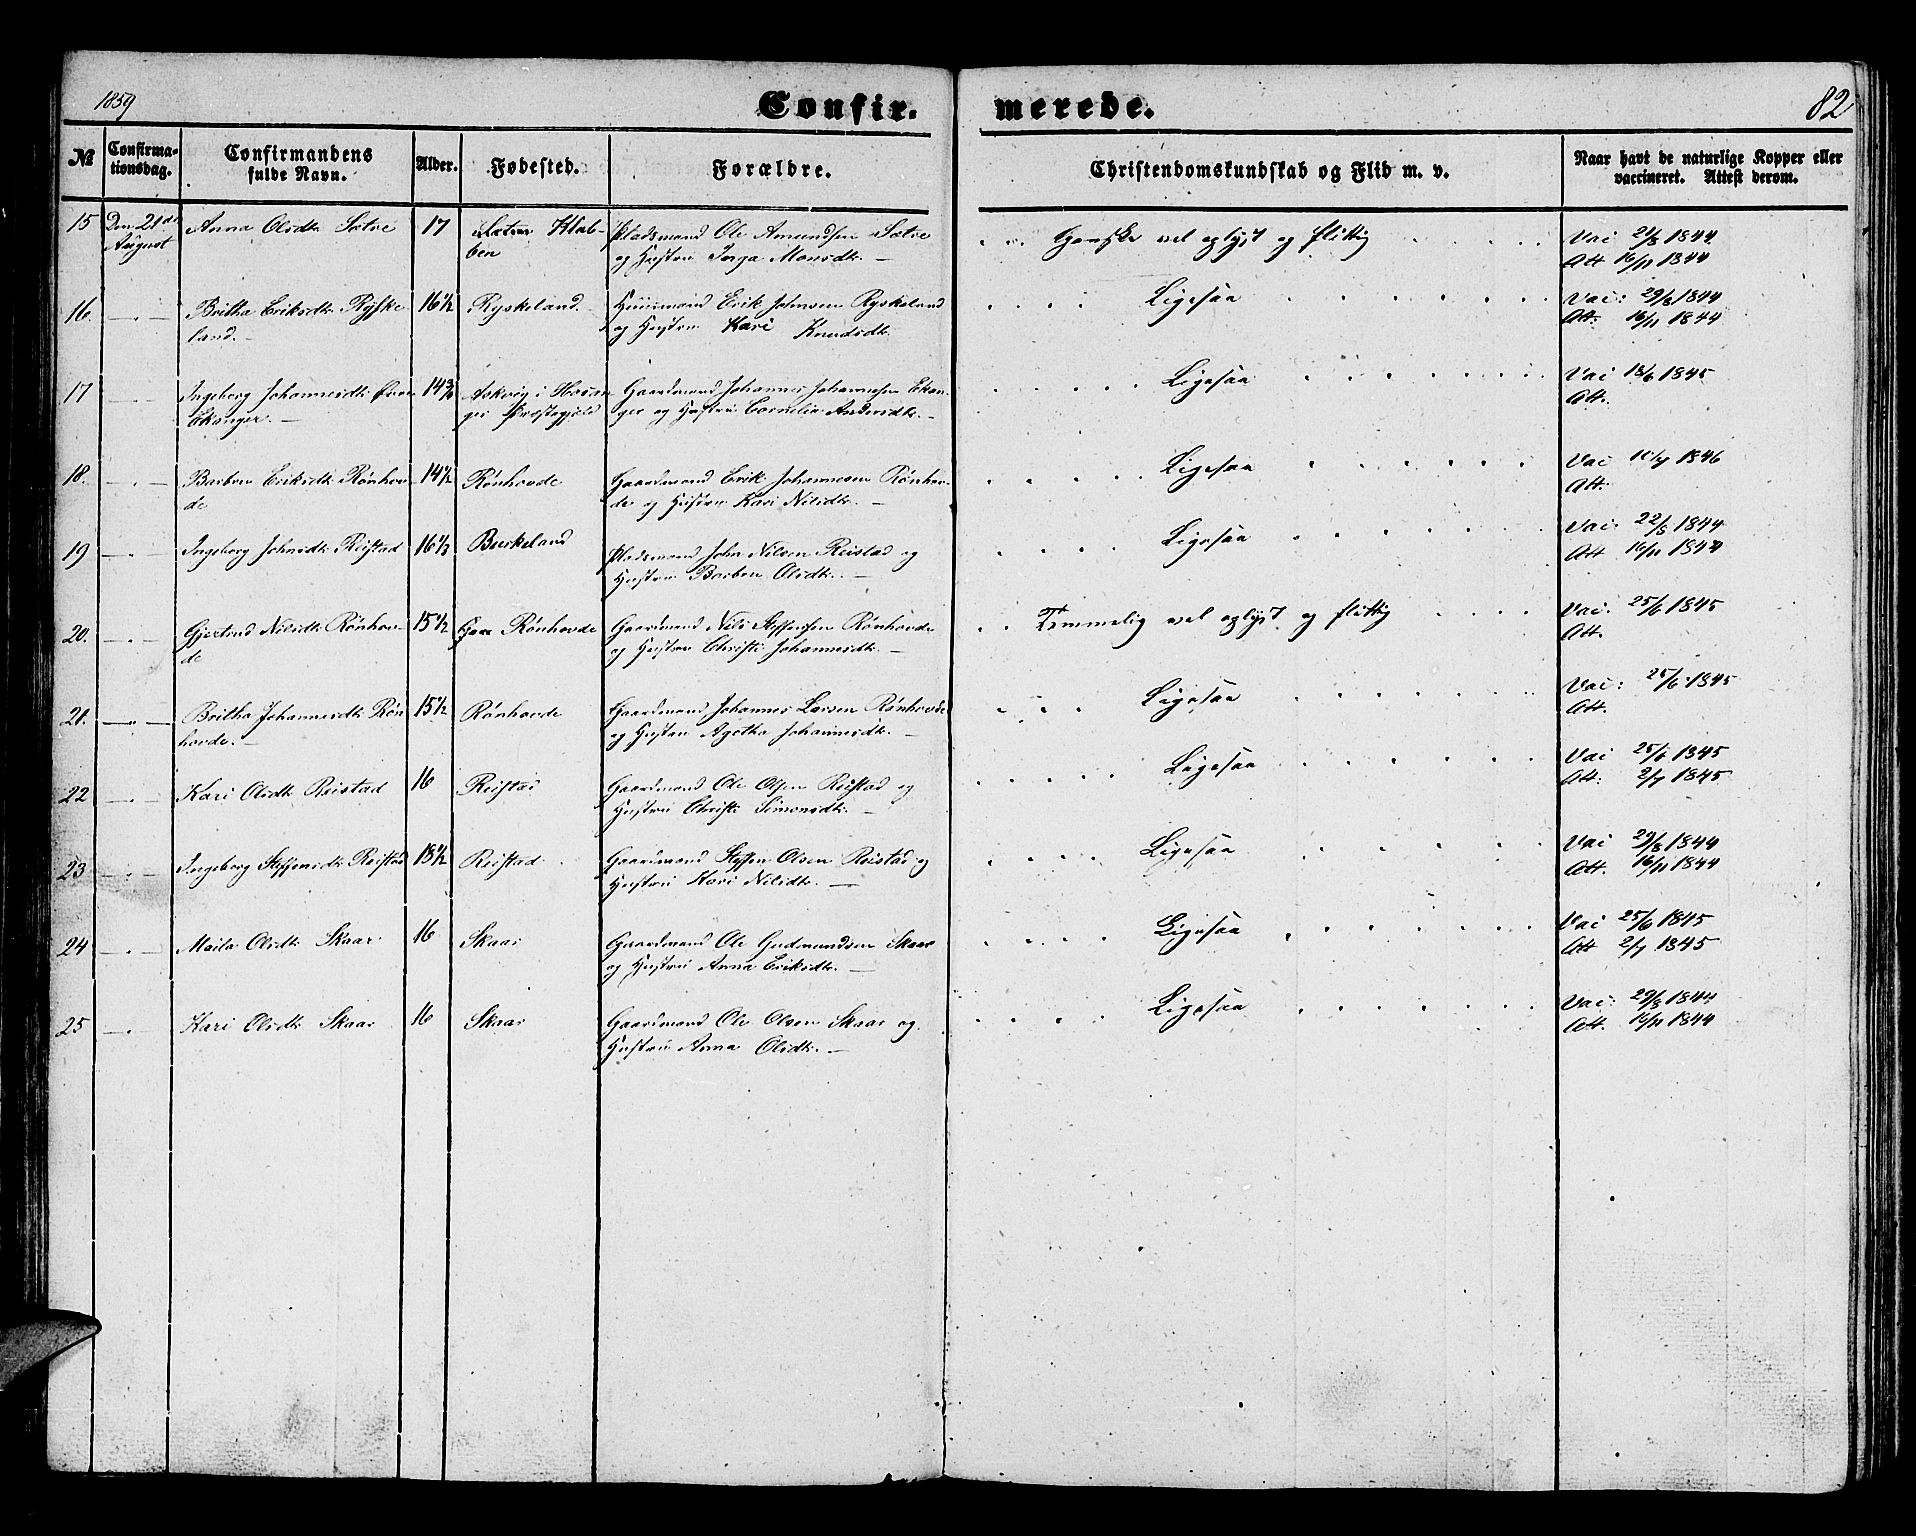 1859
Confirmerede.
82
No
Confirmationsdag.
Confirmandens fulde Navn.
Alder.
Fødested.
Forældre.
Christendomskundskab og Flid m. v.
Naar havt de naturlige Kopper eller vaccineret. Attest derom.
15 Den 21de Anna Olsdtr Sætre 17 Pladsmand Ole Amundsen Sætre Ganske vel oplyst og flittig Vac 1844
August og Hustru Inga Monsdtr. Att 16/11 1844
16. Britha Eriksdtr. Ryske 16½ Ryskeland. Huusmand Erik Johnsen Ryskeland Ligesaa Vac: 29/8 1844
land. og Hustru Kari Knudsdtr. Att: 16/11 1844
17 Ingeborg Johannesdtr 14¾ Askvig i Hosan Gaardmand Johannes Johannesen Ekan- Ligesaa Vac 18/6 1845
Ekanger. ger Præstegjeld ger og Hustru Cornelia Andersdtr. Att.
18. Barbro Eriksdtr Rønhov 14½ Rønhovde Gaardmand Erik Johannesen Rønhov- Ligesaa Vac 1846
de de og Hustru Kari Nilsdtr. Att:
19 Ingeborg Johnsdtr Reistad 16½ Birkeland Pladsmand John Nilsen Reistad og Ligesaa Vac: 22/8 1844
Hustru Barbro Olsdtr. Att 16/11 1844
20. Gjertrud Nilsdtr Rønhov- 15½ Rønhovde Gaardmand Nils Steffensen Rønhovde Temmelig vel oplyst og flittig Vac: 25/6 1845
de og Hustru Christi Johannesdtr. Att.
21. Britha Johannesdtr Røn 15½ Rønhovde Gaardmand Johannes Larsen Rønhovde Ligesaa Vac: 25/6 1845
hovde. og Hustru Agatha Johannesdtr. Att.
22 Kari Olsdtr Reistad 16 Reistad Gaardmand Ole Olsen Reistad og Ligesaa Vac 25/6 1845
Hustru Christi Simonsdtr. Att: 2/7 1845
23 Ingeborg Steffensdtr Reistad 18½ Reistad Gaardmand Steffen Olsen Reistad og Ligesaa Vac 29/8 1844
Hustru Kari Nilsdtr. Att. 16/11 1844
24 Maila Olsdtr Skaar 16 Skaar Gaardmand Ole Gudmundsen Skaar Ligesaa Vac 25/6 1845
og Hustru Anna Eriksdtr. Att 2/7 1845
25 Kari Olsdtr Skaar 16 Skaar Gaardmand Ole Olsen Skaar og Ligesaa Vac: 29/8 1844
Hustru Anna Olsdtr. Att. 16/11 1844